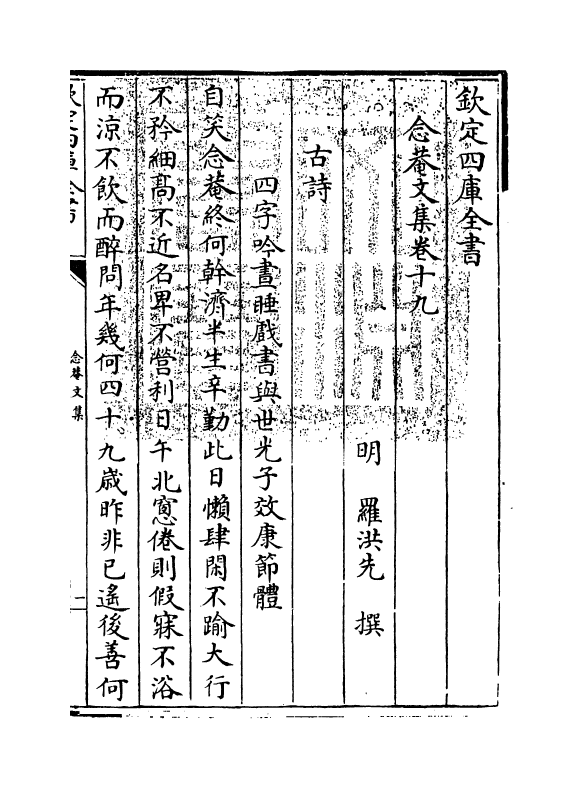 欽定四庫全書
念菴文集卷十九
明　羅洪先　撰
古詩
四字吟晝睡戲書與世光子效康節體
自笑念菴終何幹濟半生辛勤此日懶肆閑不踰大行
不矜細髙不近名卑不營利日午北窻倦則假寐不浴
而凉不飲而醉問年幾何四十九歲昨非已遙後善何
念菴文集